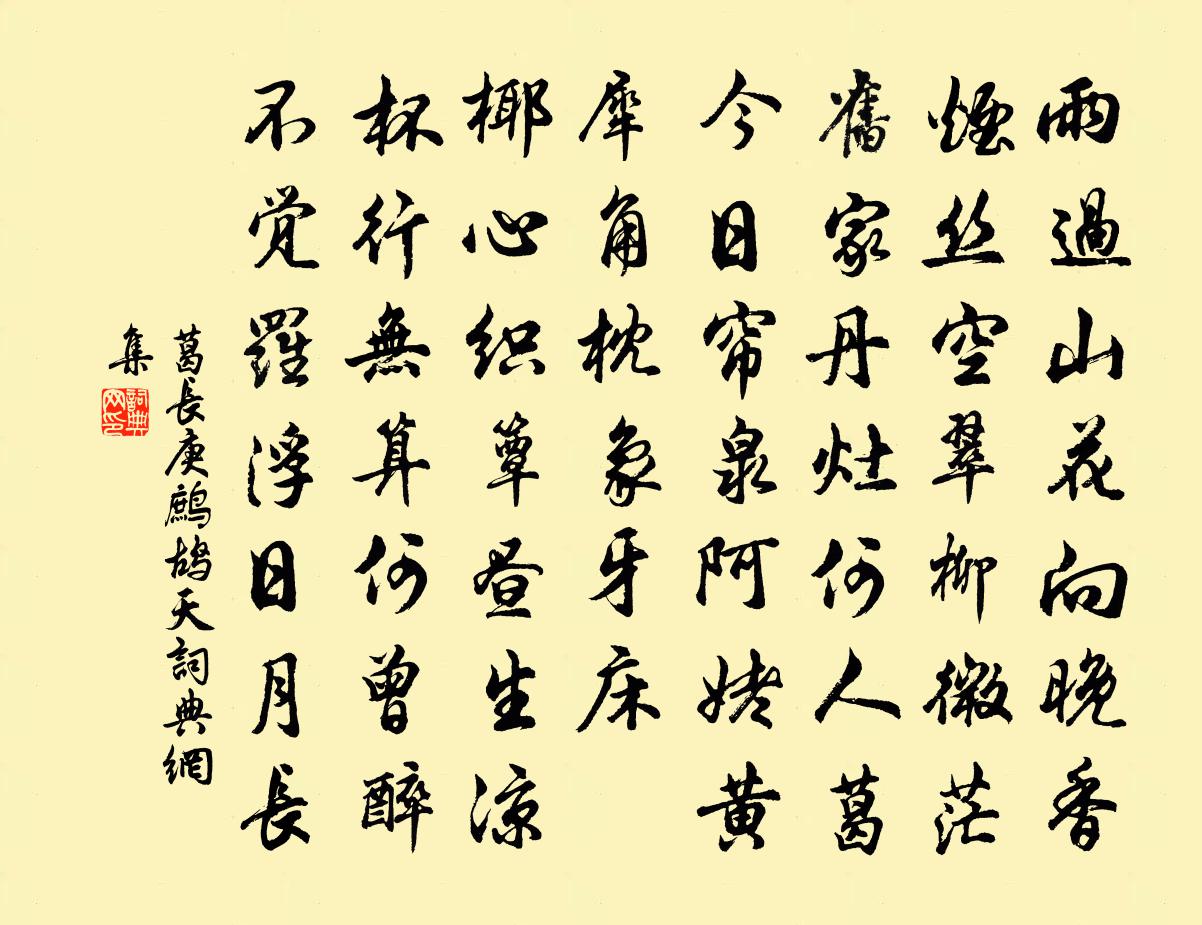 雨過山花向晚香
煙丝空翠柳微茫
舊家丹灶何人葛
今日帘泉阿姥黄
犀角枕象牙床
椰心织簟昼生凉
杯行無算何曾醉
不觉羅浮日月長
葛長庚鷓鴣天詞典網
集
詞典网印